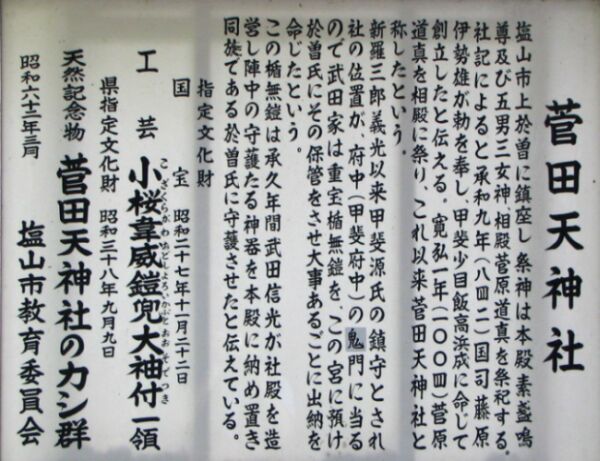 菅田天神社
塩山市上於曽に鎮座し祭神は本殿素盞嗚
尊及び五男三女神、相殿菅原道真を祭祀する。
社記によると承和九年（八四二）国司藤原
伊勢雄が勅を奉し、甲斐少目飯高浜成に命じて
創立したと伝える。寛弘一年（一〇〇四）菅原
道真を相殿に祭り、これ以来菅田天神社と
称したという。
新羅三郎義光以来甲斐源氏の鎮守とされ
社の位置が、府中（甲斐府中）の鬼門に当る
ので武田家は重宝楯無鎧を、この宮に預け
於曽氏にその保管をさせ大事あるごとに出納を
命じたという。
この楯無鎧は承久年間武田信光が社殿を造
営し陣中の守護たる神器を本殿に納め置き
同族である於曽氏に守護させたと伝えている。
指定文化財
国宝 昭和二十七年十一月二十二日
工芸 小桜韋威鎧兜大袖付一領
こざくらがわおどしよろいかぶとおおそでつき
県指定文化財 昭和三十八年九月九日
天然記念物 菅田天神社のカシ群
昭和六十二年三月 塩山市教育委員会